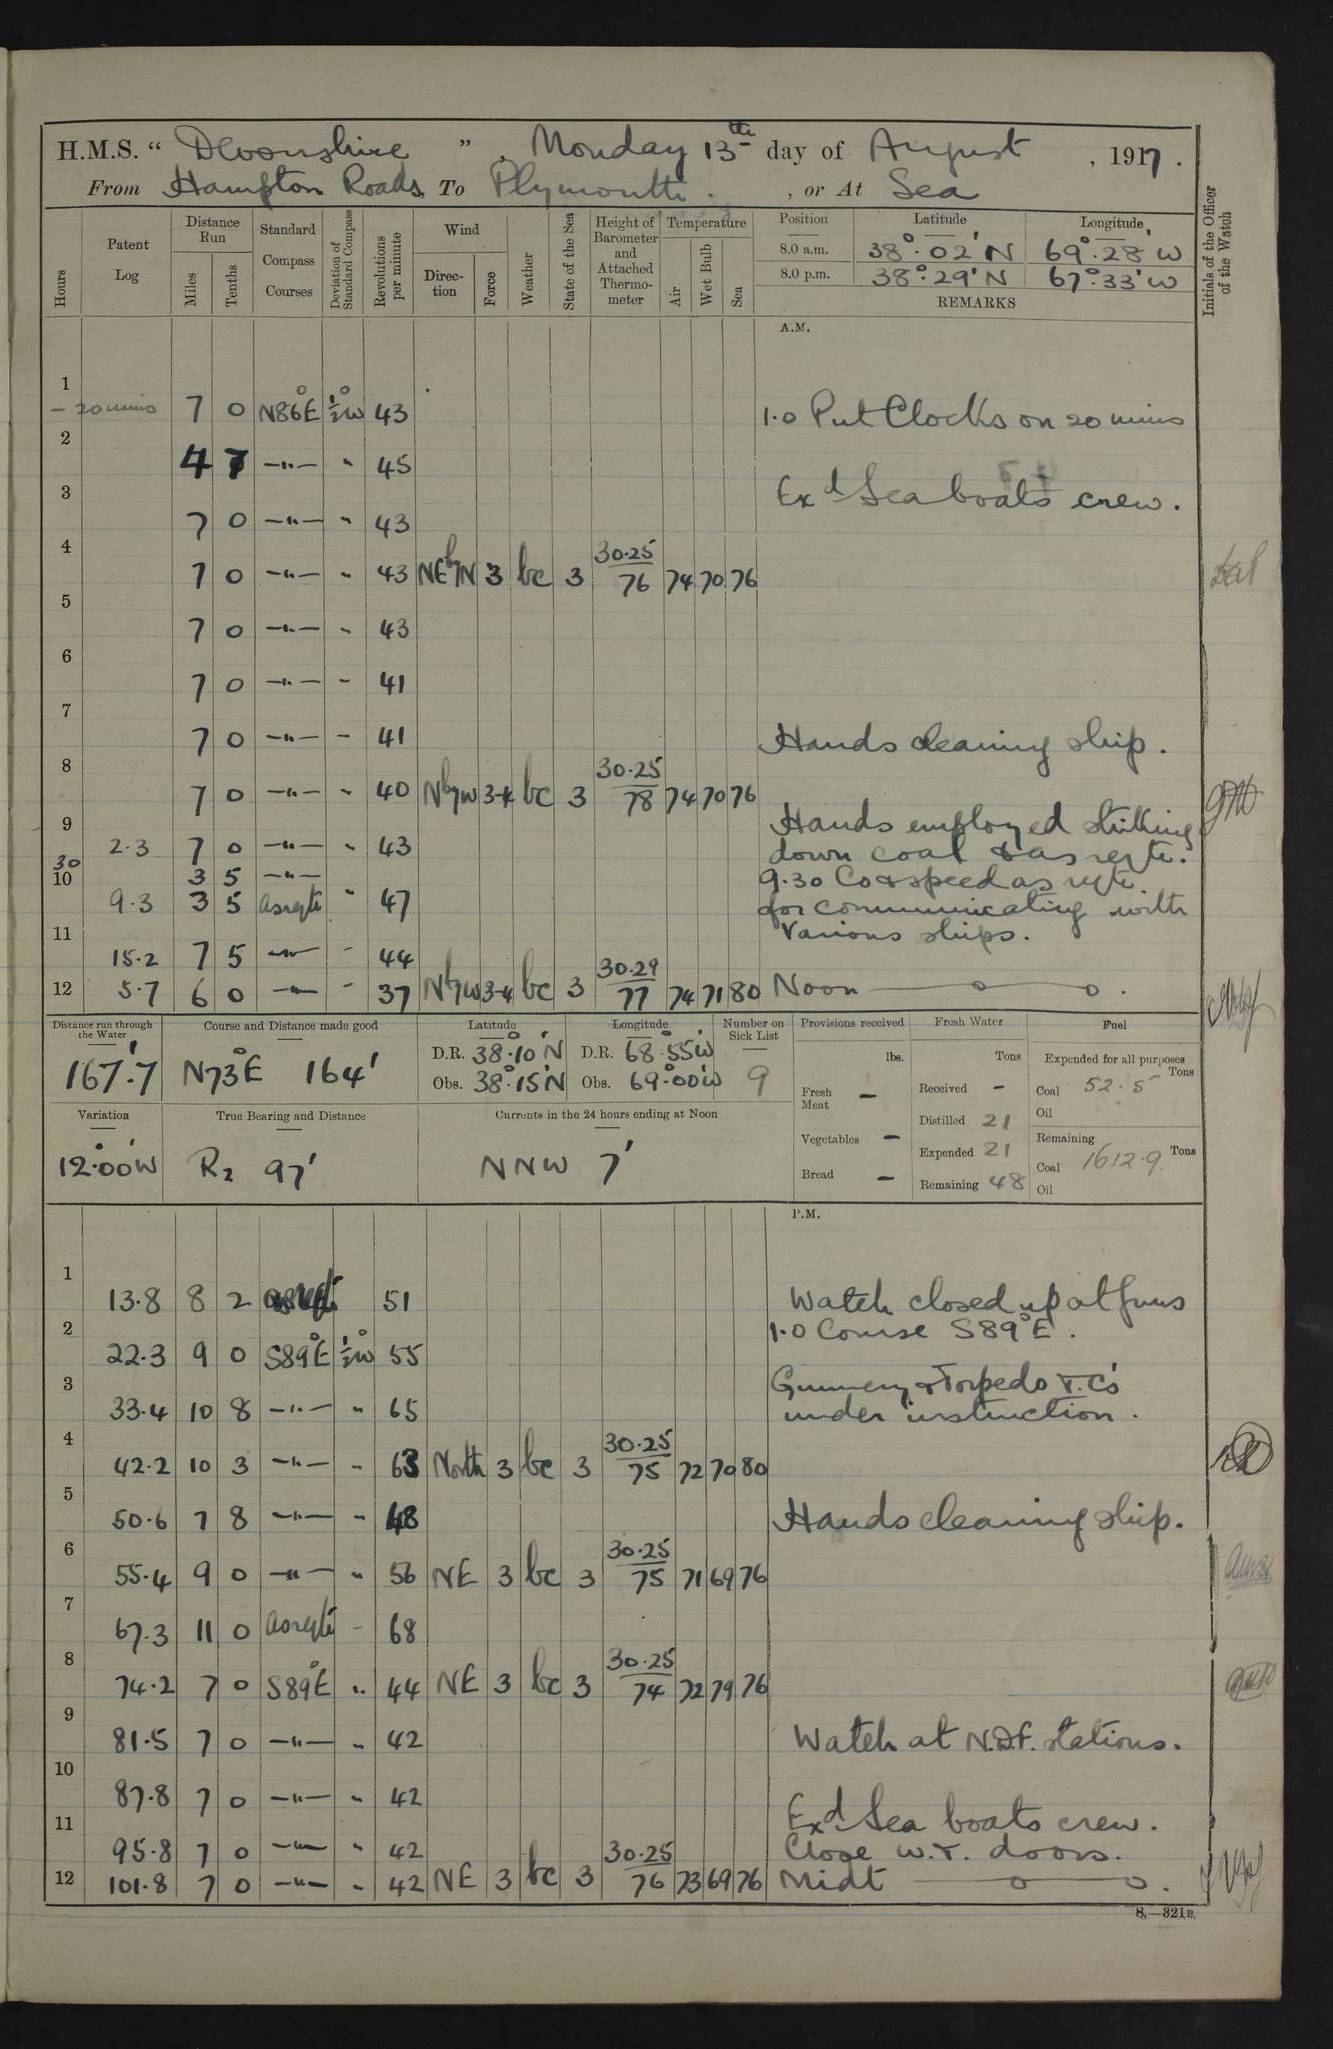 H.M.S. " Devonshire ", Monday 13th day of August, 1917.
From Hampton Roads To Plymouth. , or At Sea
Hours
Patent Log
Distance Run
Miles
Tenths
Standard Compass Courses
Deviation of Standard Compass
Revolutions per minute
Wind
Direction
Force
Weather
State of the Sea
Height of Barometer and Attached Thermometer
Temperature
Air
Wet Bulb
Sea
Position Latitude Longitude
8.0 a.m. 38°.02'N 69°.28'W
8.0 p.m. 38°.29'N 67°.33'W
REMARKS
Initials of the Officer of the Watch
A.M.
1 - 20 mins 7 0 N86°E ½°W 43 1.0 Put Clocks on 20 mins
2 4 7 —"— " 45
3 7 0 —"— " 43 Exd Sea boats crew.
4 7 0 —"— " 43 NEbyN 3 bc 3 30.25 76 74 70 76
5 7 0 —"— " 43
6 7 0 —"— " 41
7 7 0 —"— " 41 Hands cleaning ship.
8 7 0 —"— " 40 NbyW 3-4 bc 3 30.25 78 74 70 76
Hands employed striking
9 2.3 7 0 —"— " 43 down coal & as reqte.
30 3 5 —"— 9.30 Co & speed as reqte.
10 9.3 3 5 as reqte " 47 for communicating with
Various ships.
11 15.2 7 5 —"— " 44
12 5.7 6 0 —"— " 37 NbyW 3-4 bc 3 30.29 77 74 71 80 Noon
Distance run through the Water
167'.7
Course and Distance made good
N73°E 164'
Latitude
D.R. 38°.10'N
Obs. 38°.15'N
Longitude
D.R. 68°.55'W
Obs. 69°.00'W
Number on Sick List
9
Variation
12°.00'W
True Bearing and Distance
R2 97'
Currents in the 24 hours ending at Noon
NNW 7'
Provisions received
lbs.
Fresh Meat —
Vegetables —
Bread —
Fresh Water
Tons
Received -
Distilled 21
Expended 21
Remaining 48
Fuel
Expended for all purposes
Tons
Coal 52.5
Oil
Remaining
Tons
Coal 1612.9
Oil
P.M.
1 13.8 8 2 51 Watch closed up at guns
1.0 Course S89°E.
2 22.3 9 0 S89°E ½°W 55
Gunnery & Torpedo T.C's
3 33.4 10 8 —"— " 65 under instruction.
4 42.2 10 3 —"— " 63 North 3 bc 3 30.25 75 72 70 80
5 50.6 7 8 —"— " 48 Hands cleaning ship.
6 55.4 9 0 —"— " 56 NE 3 bc 3 30.25 75 71 69 76
7 67.3 11 0 as reqte - 68
8 74.2 7 0 S89°E " 44 NE 3 bc 3 30.25 74 72 79 76
9 81.5 7 0 —"— " 42 Watch at N.D.F. stations.
10 87.8 7 0 —"— " 42
Exd Sea boats crew.
11 95.8 7 0 —"— " 42 Close W.T. doors.
12 101.8 7 0 —"— " 42 NE 3 bc 3 30.25 76 73 69 76 Midt
S.—321B.